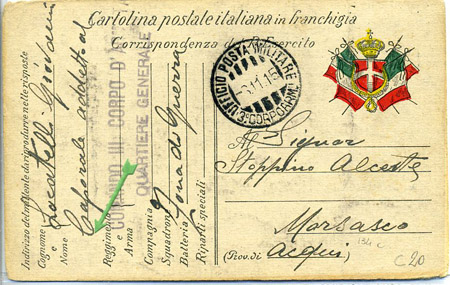 Cartolina postale italiana in franchigia
Corrispondenza del R. Esercito
Indirizzo del mittente da riprodurre nelle risposte
Cognome
e
Nome
Locatelli Giovanni
Caporale addetto al
Reggimento
e
Arma
COMANDO III CORPO D'
QUARTIERE GENERALE
Compagnia
Squadrone
Batteria
Riparti speciali
Zona di Guerra
UFFICIO POSTA MILITARE
11.15
3° CORPO ARM.
Al Signor
Stoppino Alceste
Morsasco
(Prov. di) Acqui
C20